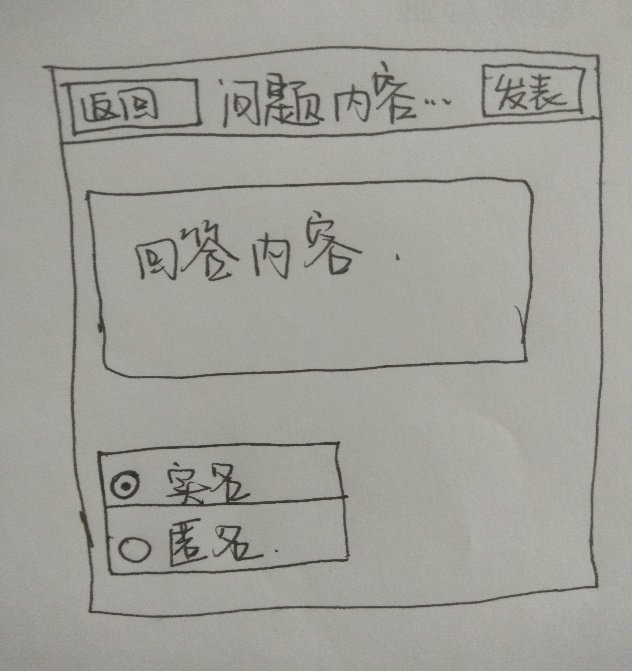 返回 问题内容... 发表
回答内容.
实名
匿名.